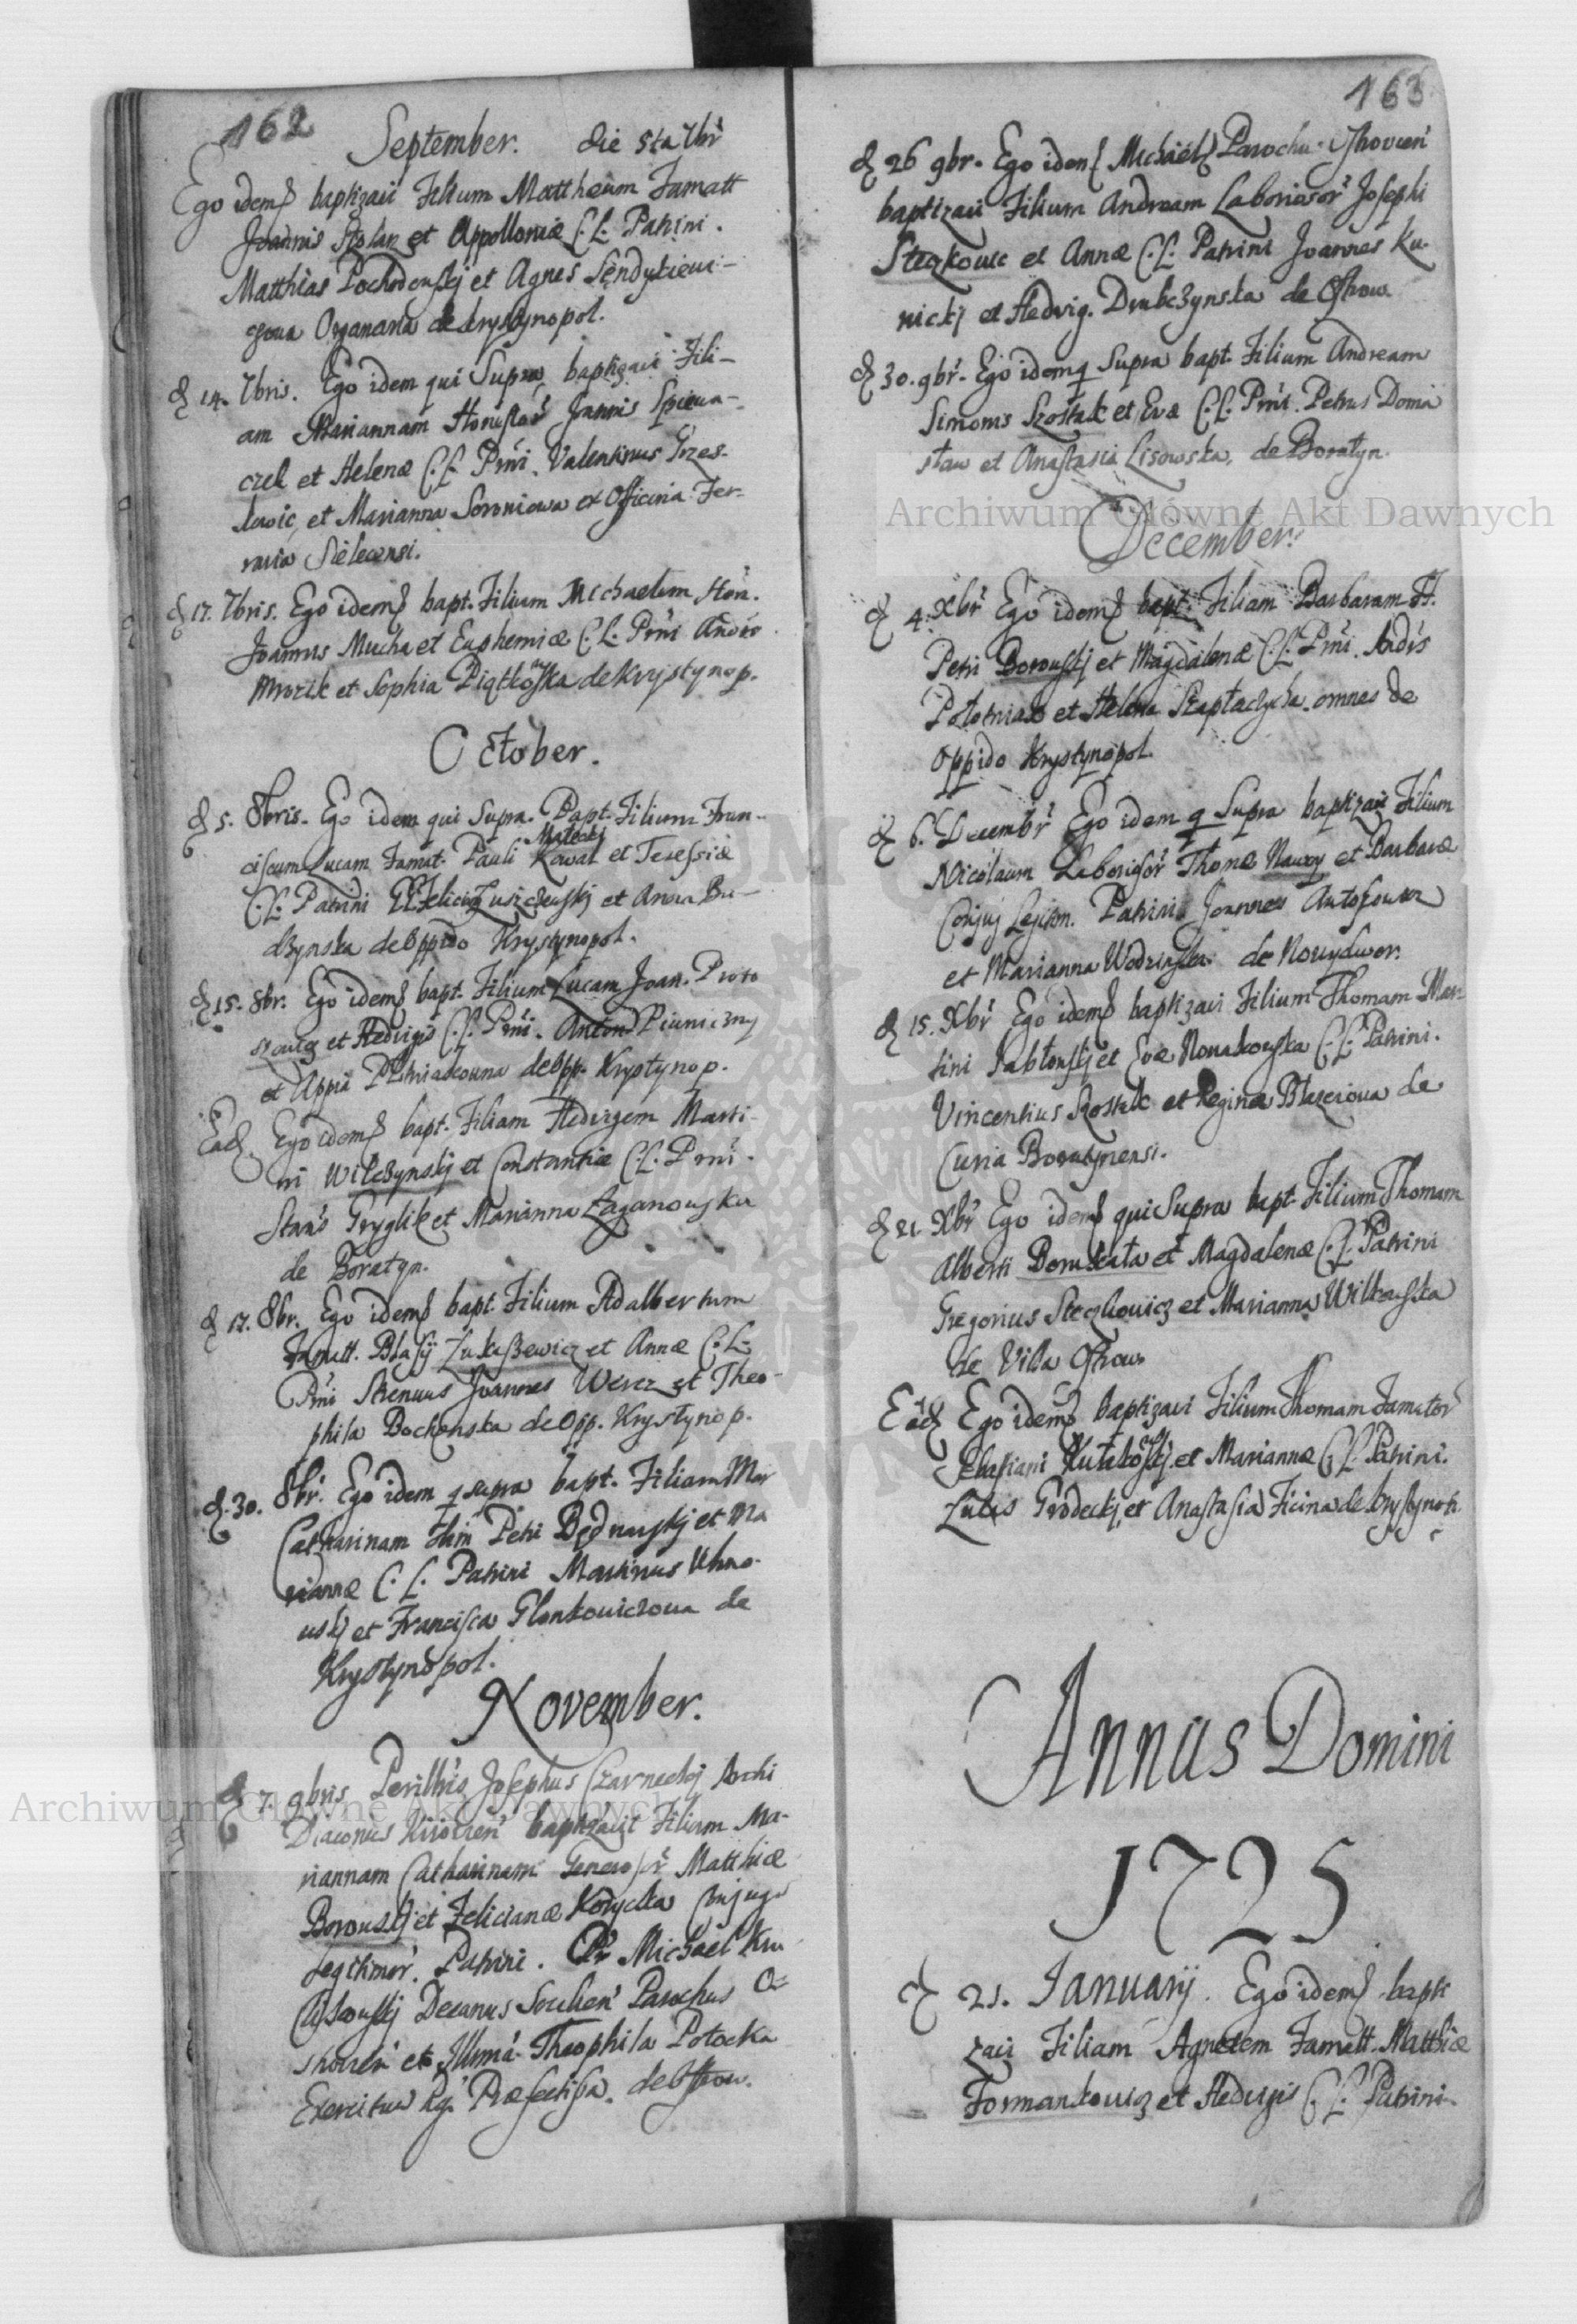 162
September. die 5ta 7br
Ego idem baptizavi Filium Mattheum Famatt
Joannis Stolarz et Appolloniæ C. L. Patrini.
Matthias Pochodenskj et Agnes Sendykiewi-
czowa Organaria de Krystynopol.
d 14. 7bris. Ego idem qui Supra baptizavi Fili-
am Mariannam Honestor Joannis Spiewa-
czek et Helenæ C. L. Prni. Valentinus Grzes-
lowic, et Marianna Soroniowa ex Officina Fer-
raria Sielecensi.
d 17. 7bris. Ego idem bapt. Filium Michaelem Hon.
Joannis Mucha et Euphemiæ C. L. Prni Andr
Mrozik et Sophia Piątkowska de Krystynop.
October.
d 5. 8bris. Ego idem qui Supra. Bapt. Filium Fran-
Małecki
ciscum Lucam Famat. Pauli Kowal et Teressiæ
C. L. Patrini Felicis Luszczewskj et Anna Bu-
dzynska de Oppido Krystynopol.
d 15. 8br. Ego idem bapt. Filium Lucam Joan. Proto
szowicz et Hedvigis C. L. Prni. Anton Piwniczny
et Appia Pietriaszowna de Opp. Krystynop.
Ead. Ego idem bapt. Filiam Hedvigem Marti-
ni Wilczynskj et Constantiæ C. L. Prni.
Stan's Gryglik et Marianna Łaganowska
de Boratyn.
d 17. 8br. Ego idem bapt. Filium Adalbertum
Famatt. Blasij Łukaszewicz et Annæ C. L.
Prni Strenuus Joannes Werez et Theo-
phila Bochenska de Opp. Krystynop.
d. 30. 8br. Ego idem q supra bapt. Filiam Mar
Catharinam Petri Bednarskj et Ma
riannæ C. L. Patrini Martinus Uhno-
wskj et Francisca Glonkowiczowa de
Krystynopol.
November.
d 7. 9bris Perillris Josephus Czarneckj Archi
Diaconus Kijovien baptizavit Filiam Ma-
riannam Catharinam Generosor Matthiæ
Borowskj et Felicianæ Korycka Conjugu
Legitimor. Patrini. Pr Michael Kru
Decanus Parochus O-
strovien et Illma Theophila Potocka
Exercitus Rg. Præfectissa. de Ostrow.
163
d 26 9br. Ego idem Michael Parochus Ostrovien
baptizavi Filium Andream Laboriosor Josephi
Steczkowic et Annæ C. L. Patrini Joannes Ku-
nickj et Hedvig. Drubczynska de Ostrow.
d 30. 9br. Ego idem q Supra bapt. Filium Andream
Simonis Szostak et Evæ C. L. Prni. Petrus Doma
sław et Anastasia Lisowska, de Boratyn.
December.
d 4. Xbr Ego idem bapt. Filiam Barbaram H.
Petri Borowskj et Magdalenæ C. L. Prni. Andrs
Połotniak et Helena Szaptaczycha omnes de
Oppido Krystynopol.
d 6. Decembr Ego idem q Supra baptizavi Filium
Nicolaum Laborisor Thomæ Nawoy et Barbaræ
Conjug Legitim. Patrini Joannes Antoszowicz
et Marianna Wodzinska de Nowydwor.
d 15. Xbr Ego idem baptizavi Filium Thomam Mar-
tini Jabłonskj et Evæ Nowakowska C. L. Patrini.
Vincentius Szostak et Regina Błazeiowa de
Curia Boratynensi.
d 21. Xbr Ego idem qui Supra bapt. Filium Thomam
Alberti Borukała et Magdalenæ C. L. Patrini
Gregorius Steczkowicz et Marianna Wilkowska
de Villa Ostrow
Ead Ego idem baptizavi Filium Thomam Famator
Sebastiani Kułakowskj et Mariannæ C. L. Patrini.
Lucas Grodeckj, et Anastasia Ficina de Krystynop.
Annus Domini
1725
d 21. Ianuarij. Ego idem bapti
zavi Filiam Agnetem Famatt. Matthiæ
Formankowicz et Hedvigis C. L. Patrini
Archiwum Główne Akt Dawnych
Archiwum Główne Akt Dawnych